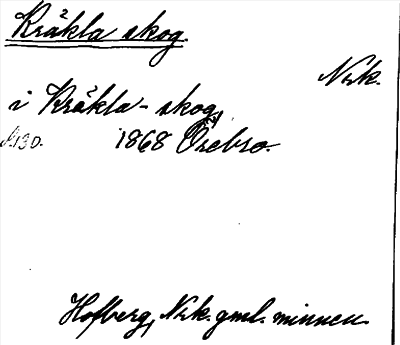 Kråkla skog
Nrk.
i Kråkla-skog,
s. 130. 1868 Örebro.
Hofberg, Nrk. gml. minnen